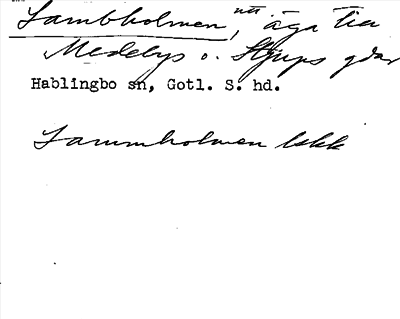 Lambholmen, nu äga till
Medebys o. Stjups gdar
Hablingbo sn, Gotl. S. hd.
Lammholmen